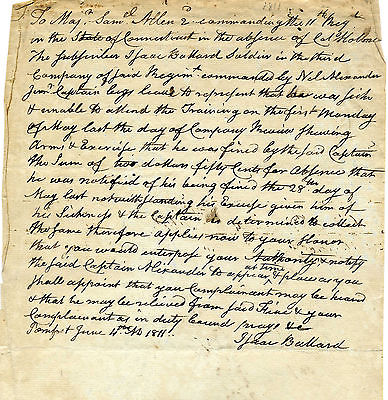 To Maj. Saml Allen 2d commanding the 11th Regt
in the State of Connecticut in the absence of Col Holmes
The Isaac Bullard Soldier in the third
Company of said Regimt commanded by Nel Alexander
Junr Captain begs leave to represent that he was sick
& unable to attend the Training on the first Monday
of May last the day of Company Review shewing
Arms & Exercise that he was fined by the said Captain
the Sum of two dollars fifty Cents for Absence that
he was notified of his being fined the 28th day of
May last notwithstanding his Excuse given him of
his Sickness & the Captain is determined to collect
the same therefore applies now to your
that you would interpose your Authority & notify
the said Captain Alexander to appear at time & place as you
shall appoint that you Complainant may be heard
& that he may be relieved from said Fine & your
Complainant as in duty bound prays &c
Pomft June 4th AD 1811.
Isaac Bullard